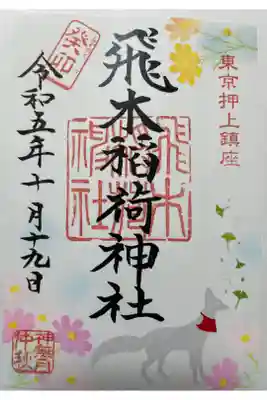 東京押上鎮座
飛木稲荷神社
飛木稲荷神社
癸卯
令和五年十月十九日
神無月
仲秋